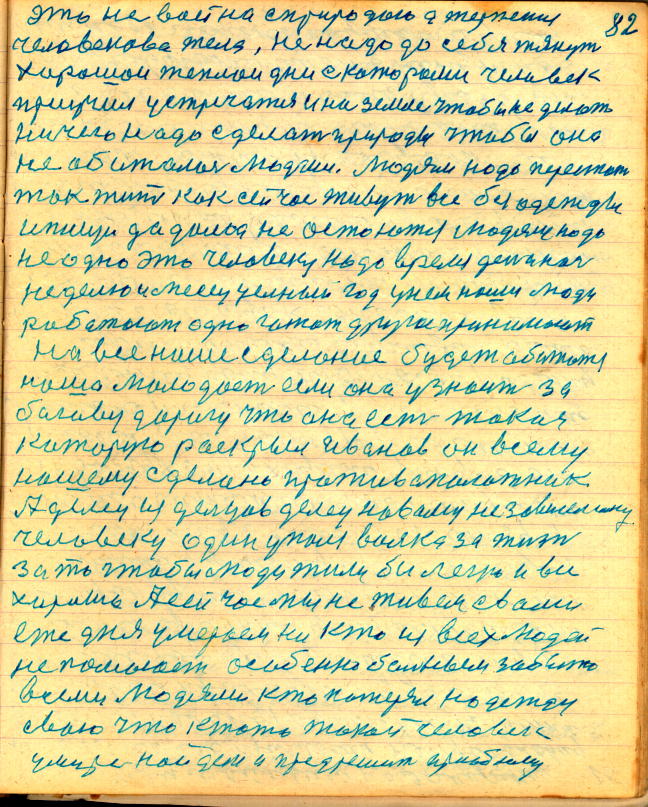 82
Это не война с природою а терпения
человекова тела, не надо до себя тянут
хорошои теплои дни с которами человек
приучил устречатя и на земле чтобы не делать
ничего надо сделат природы чтобы она
не абижалас людми. Людям надо перестат
так жит как сейчас живут все без одежды
и пищи да дамов не остаются людям надо
не одно это человеку надо время день ноч
неделю и месец целный год у нем наши люди
работают одно гатат другое принимают
На все наше сделаное будет абижатя
наша молодост если она узнаит за
богаву дорогу что она ест такая
каторую раскрыл Иванов он всему
нашему сделано противаположник
А делец из делцов делец новаму независемаму
человеку один у поля воика за жит
за то чтобы люди жили бы легко и все
хорошо А сейчас мы не живем с вами
еже дня умераем ни кто из всех людей
не помогает особенно болным забито
всеми людями кто потерял надежду
сваю что ктото такой человек
умира найдет и предрешит проблему